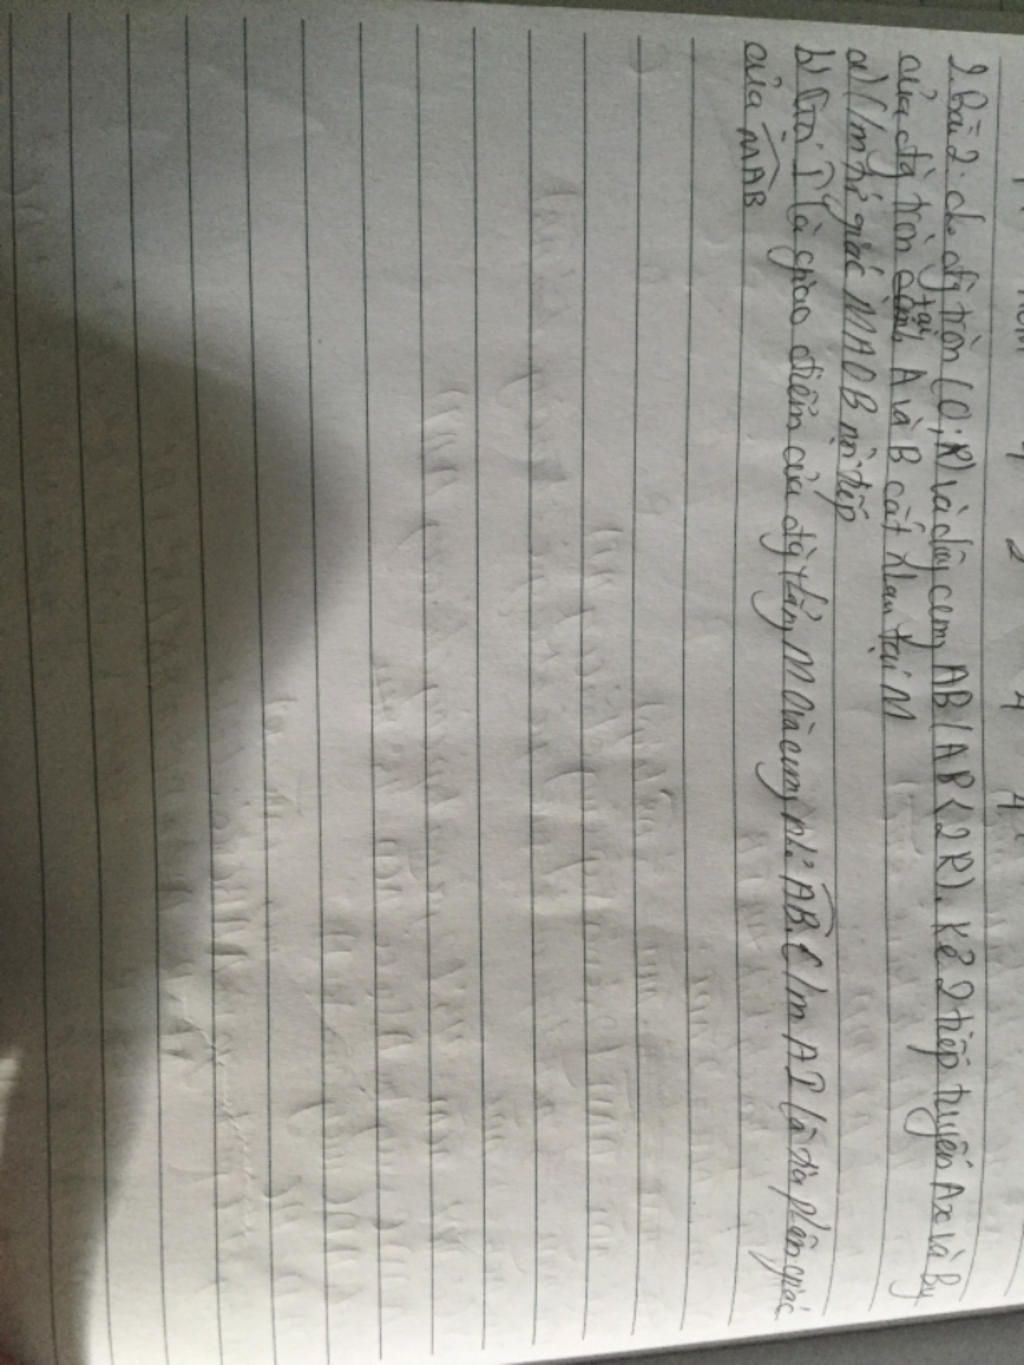 2. Bài 2. cho đg tròn (O;R) và dây cung AB (AB < 2R). Kẻ 2 tiếp tuyến Ax và By
của đg tròn tại A và B cắt nhau tại M
a) C/m tứ giác MAOB nội tiếp
b) Gọi I là giao điểm của đg thẳng MO và cung nhỏ AB. C/m AI là tia phân giác
của MAB